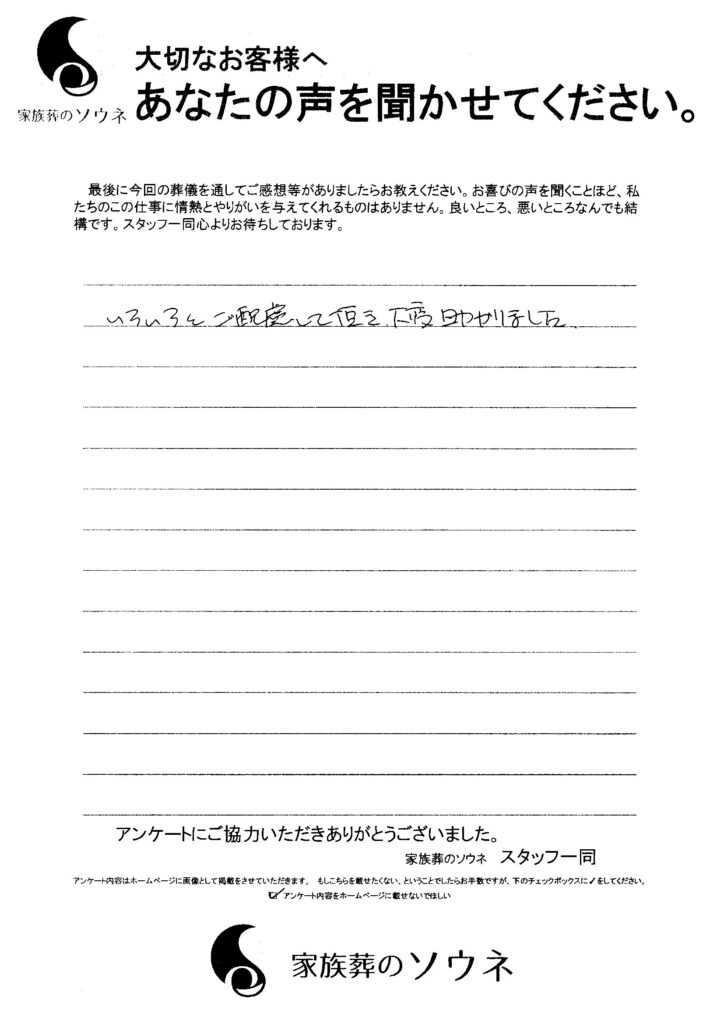 大切なお客様へ
家族葬のソウネ
あなたの声を聞かせてください。
最後に今回の葬儀を通してご感想等がありましたらお教えください。お喜びの声を聞くことほど、私
たちのこの仕事に情熱とやりがいを与えてくれるものはありません。良いところ、悪いところなんでも結
構です。スタッフ一同心よりお待ちしております。
いろいろとご配慮して頂き、大変助かりました。
アンケートにご協力いただきありがとうございました。
家族葬のソウネ スタッフ一同
アンケート内容はホームページに画像として掲載をさせていただきます。 もしこちらを載せたくない、ということでしたらお手数ですが、下のチェックボックスに✓をしてください。
☑アンケート内容をホームページに載せないでほしい
家族葬のソウネ